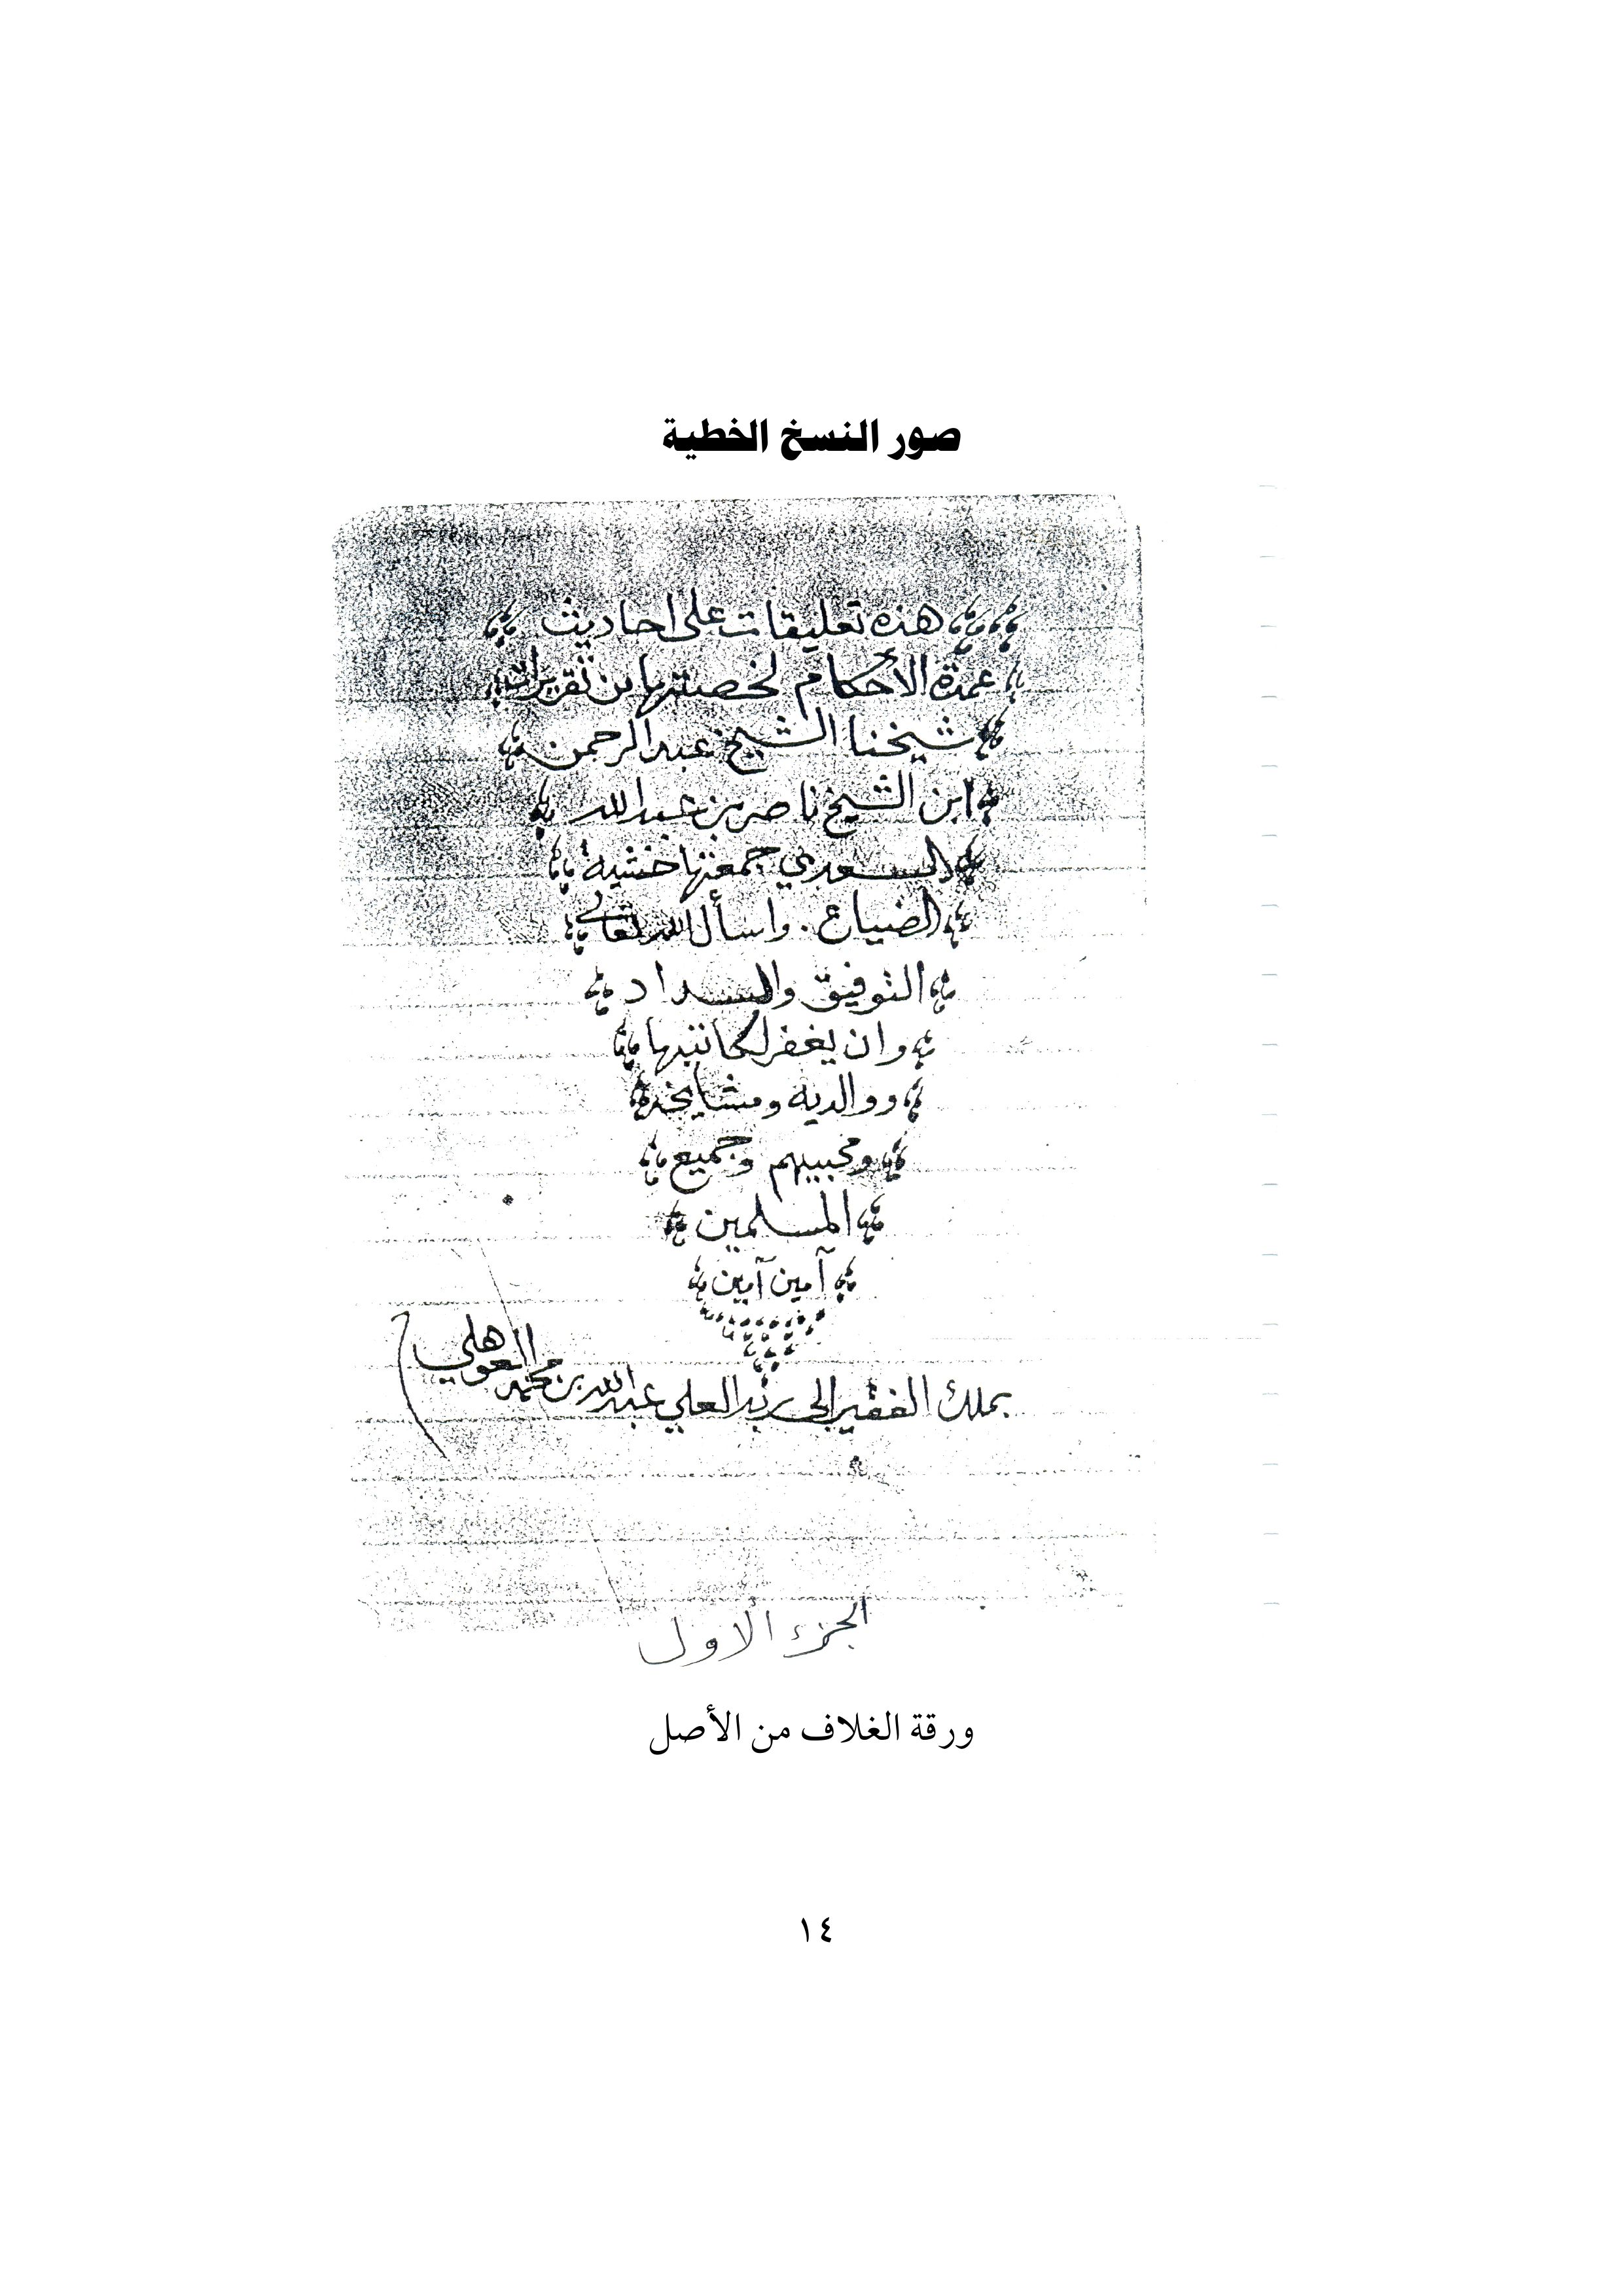 صور النسخ الخطية
هذه تعليقات على احاديث
عمدة الأحكام لخصتها من تقريرات
شيخنا الشيخ عبد الرحمن
ابن الشيخ ناصر بن عبد الله
السعدي جمعتها خشية
الضياع. واسأل الله تعالى
التوفيق والسداد
وان يغفر لكاتبها
ووالديه ومشايخه
ومحبيهم وجميع
المسلمين
آمين آمين
بملك الفقير الى ربه العلي عبد الله بن محمد العوهلي
الجزء الاول
ورقة الغلاف من الأصل
١٤